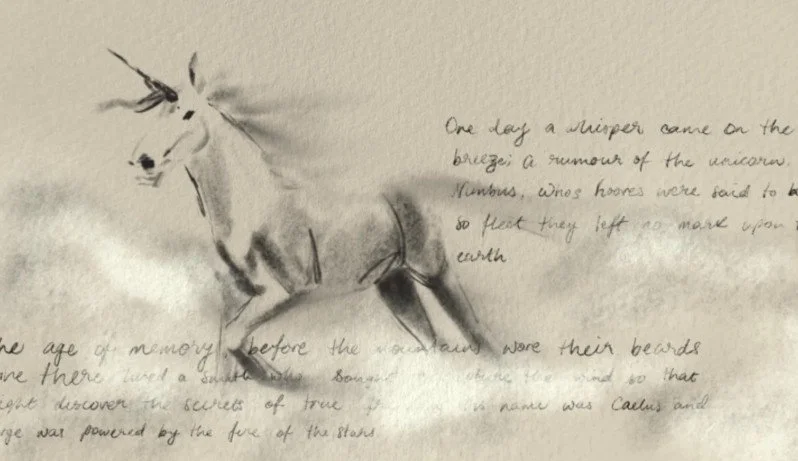 One day a whisper came on the
breeze; a rumour of the unicorn.
Nimbus, whos hooves were said to
so fleet they left no mark upon
earth
age of memory, before the mountains wore their beards
there lived a smith who sought to the wind so that
discover the secrets of true his name was Caelus and
was powered by the fire of the stars